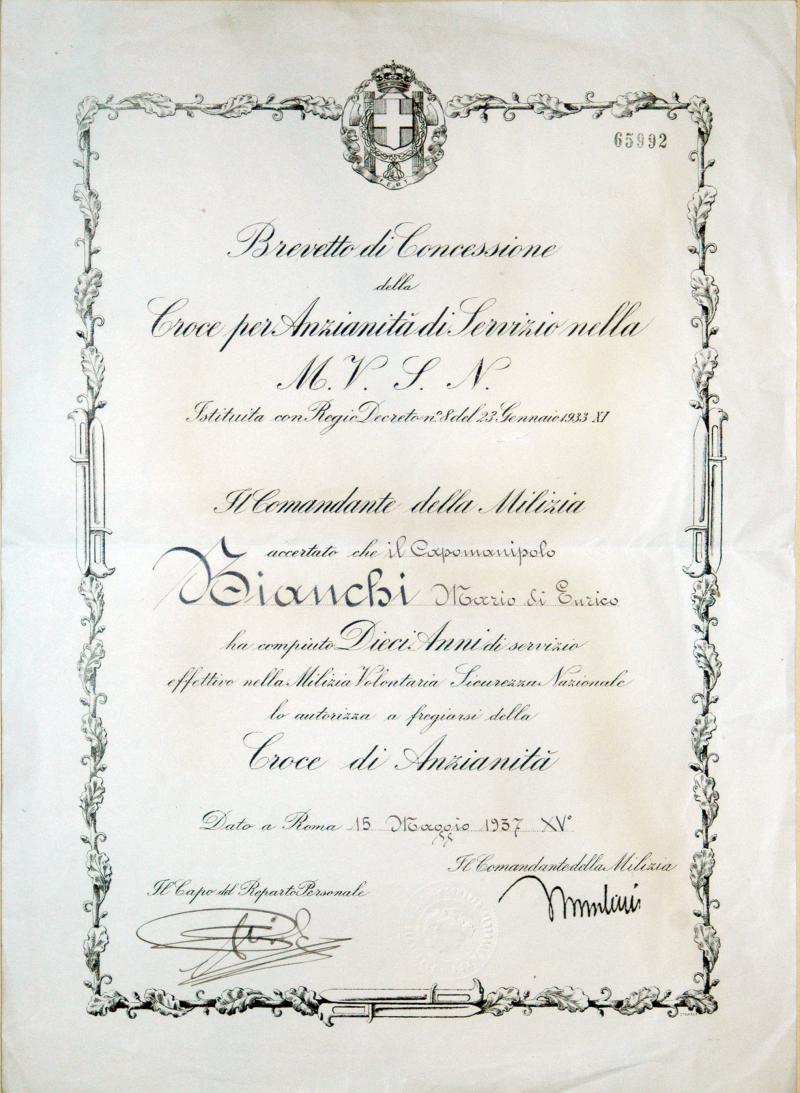 FERT
65992
Brevetto di Concessione
della
Croce per Anzianità di Servizio nella
M. V. S. N.
Istituita con Regio Decreto n.º 8 del 23 Gennaio 1933 XI
Il Comandante della Milizia
accertato che il Capomanipolo
Bianchi Mario di Enrico
ha compiuto Dieci Anni di servizio
effettivo nella Milizia Volontaria Sicurezza Nazionale
lo autorizza a fregiarsi della
Croce di Anzianità
Dato a Roma 15 Maggio 1937 XVº
Il Comandante della Milizia
Il Capo del Reparto Personale
Mussolini